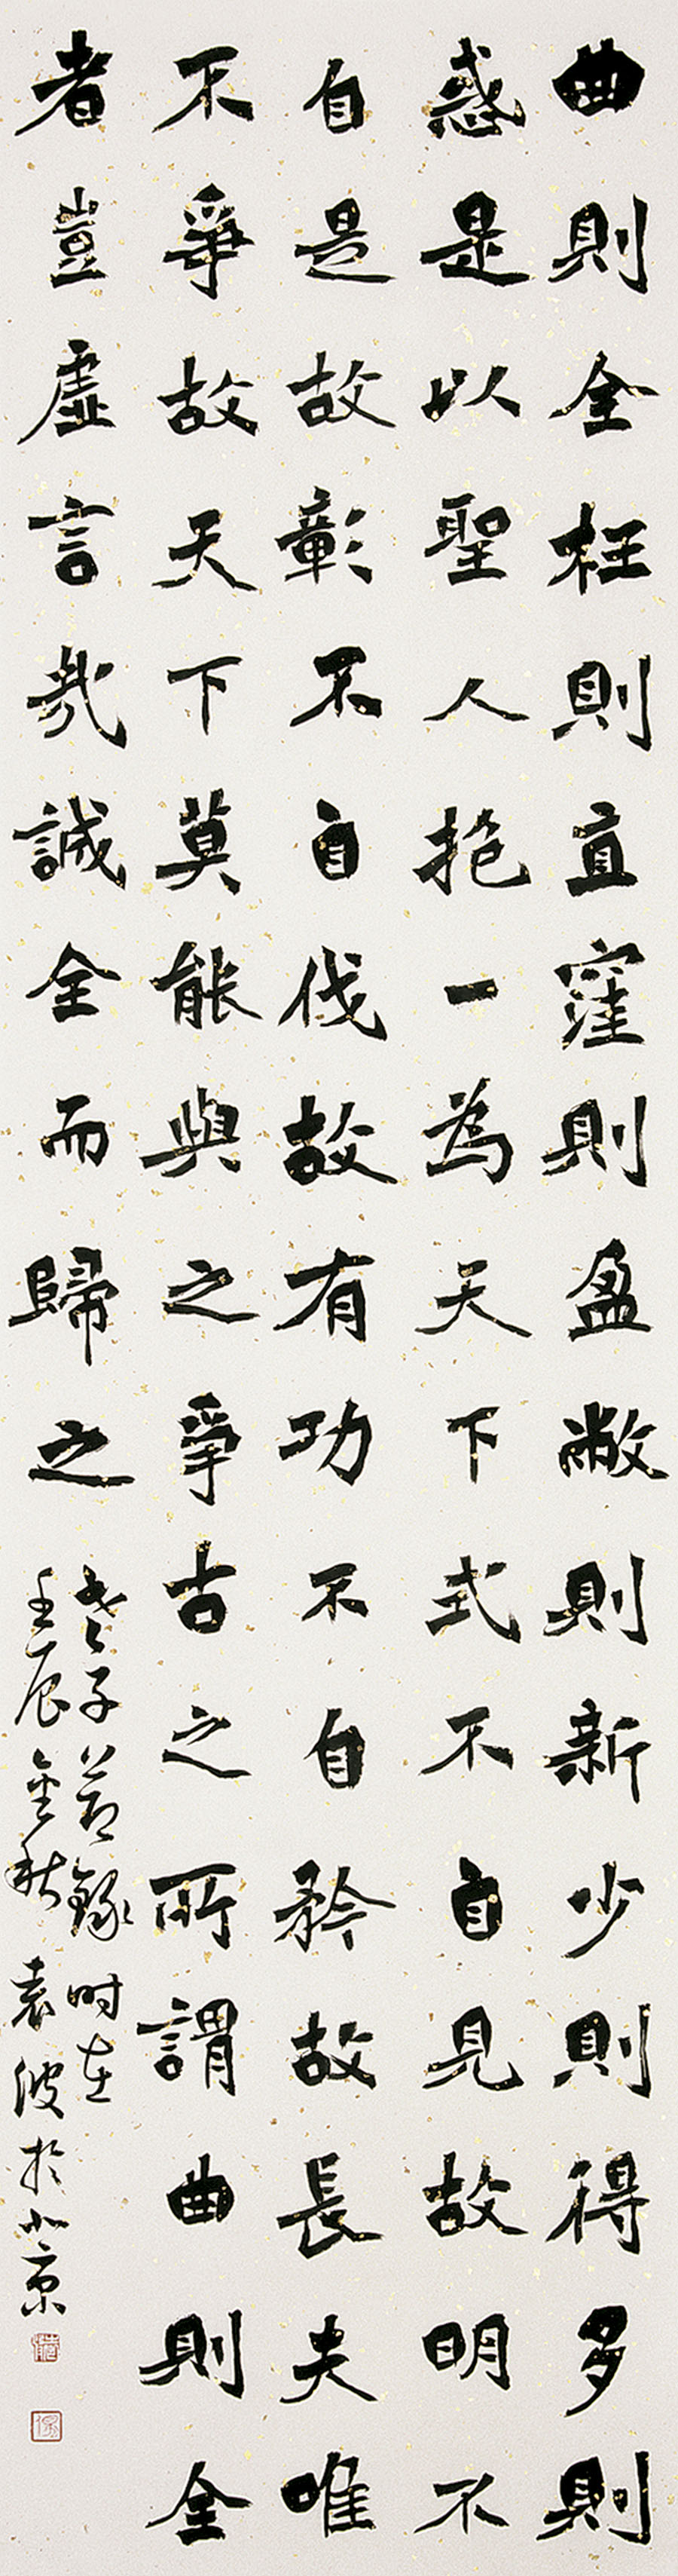 曲則全枉則直窪則盈敝則新少則得多則
惑是以聖人抱一為天下式不自見故明不
自是故彰不自伐故有功不自矜故長夫唯
不爭故天下莫能與之爭古之所謂曲則全
者豈虛言哉誠全而歸之
老子節錄時在
壬辰金秋袁波於北京